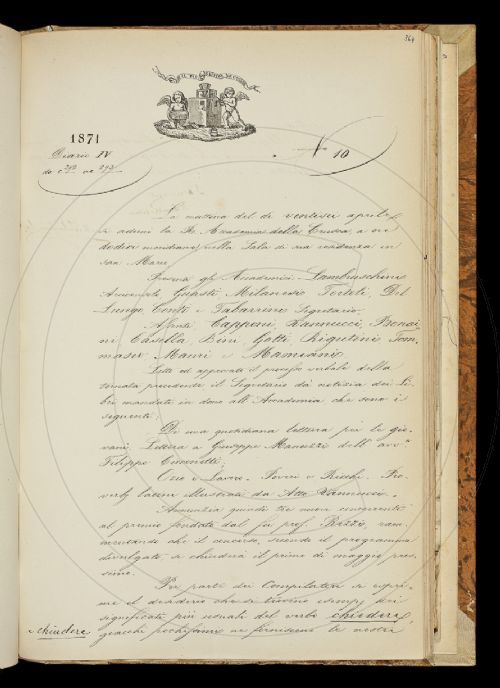 364
IL PIÙ BEL FIOR NE COGLIE
1871
Diario IV
da c. 292 a c. 293
N° 10
La mattina del dì ventisei aprile
si adunò la R. Accademia della Crusca, a ore
dodici meridiane, nella Sala di sua residenza in
San Marco.
Presenti gli Accademici Lambruschini
Arciconsolo Giusti Milanesi Tortoli, Del
Lungo, Conti e Tabarrini Segretario.
Assenti Capponi, Vannucci, Bencini
Casella, Bini, Gotti, Rigutini Tommaseo
Mauri e Mamiani.
Letto ed approvato il processo verbale della
tornata precedente il Segretario dà notizia dei Libri
mandati in dono all'Accademia che sono i
seguenti.
Di una quotidiana lettura per le giovani,
Lettera a Giuseppe Manuzzi dell'avv.°
Filippo
Ozio e Lavoro. Poveri e Ricchi. Proverbj
latini illustrati da Atto Vannucci.
Annunzia quindi tre nuovi concorrenti
al premio fondato dal fu prof. Rezzi, rammentando
che il concorso, secondo il programma
divulgato, si chiuderà il primo di maggio prossimo.
Per parte dei Compilatori si esprime
il desiderio che si trovino esempj dei
significati più usuali del verbo chiudere,
e chiudere
giacchè pochissimi ne forniscono le nostre